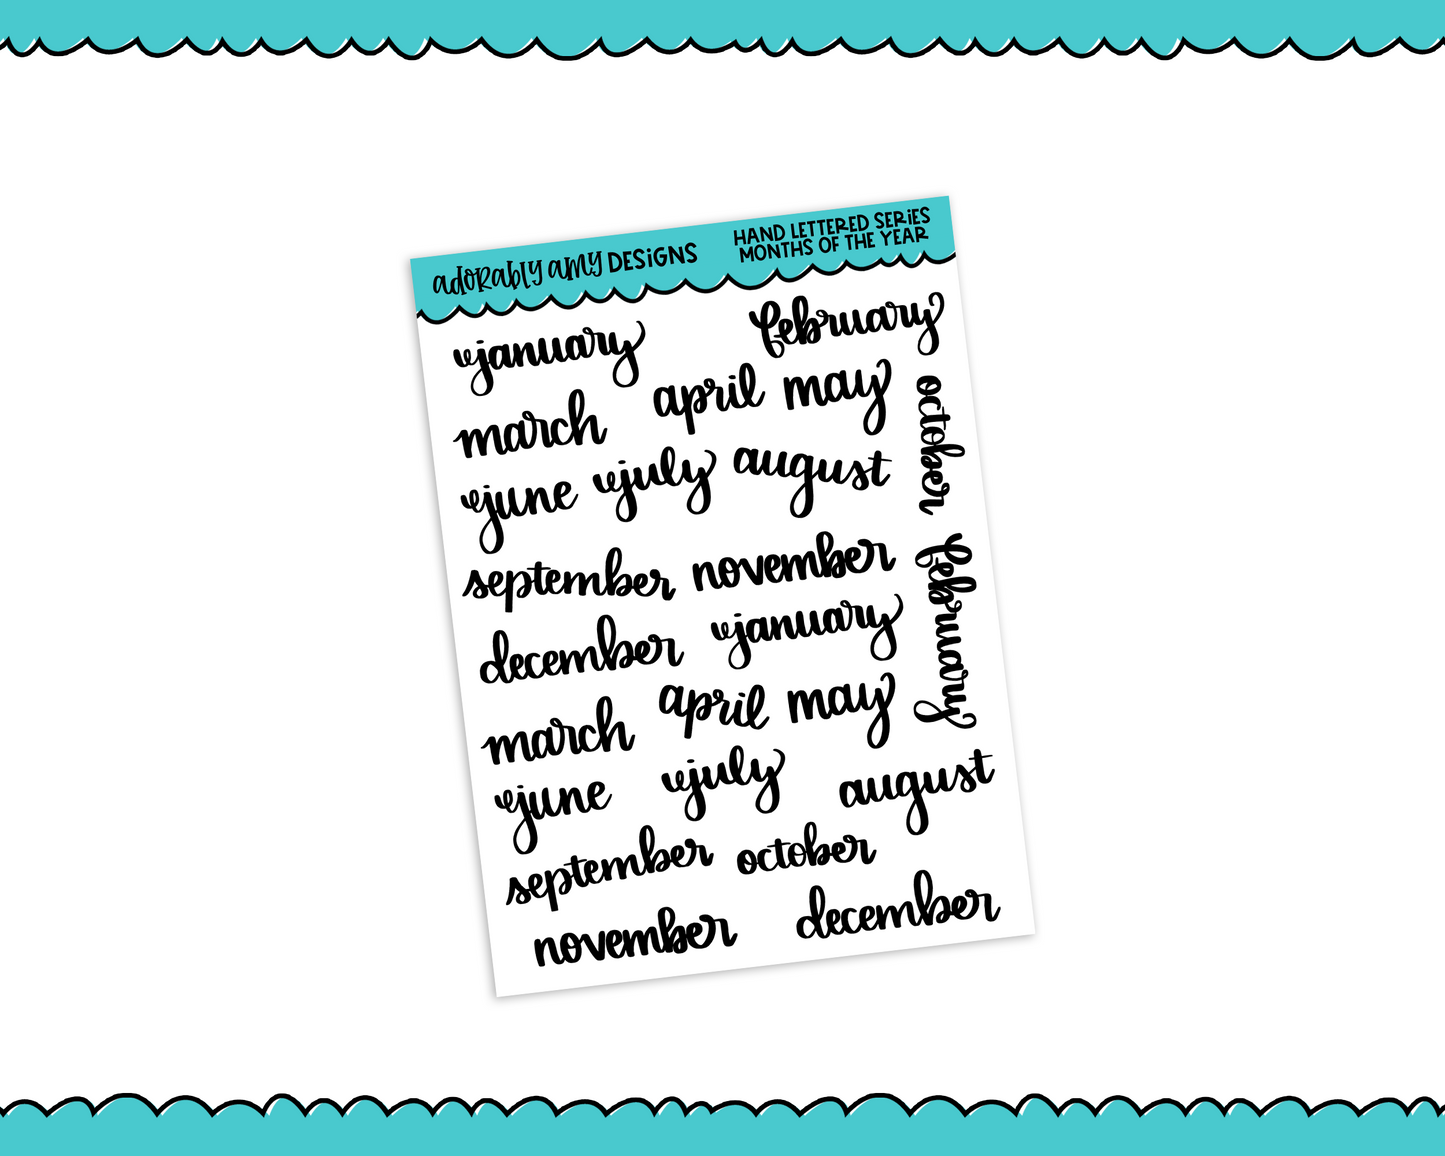 adorably amy DESiGNS
HAND LETTERED SERiES
MONTHS OF THE YEAR
january
february
march
april
may
october
june
july
august
september
november
february
december
january
march
april
may
june
july
august
september
october
november
december